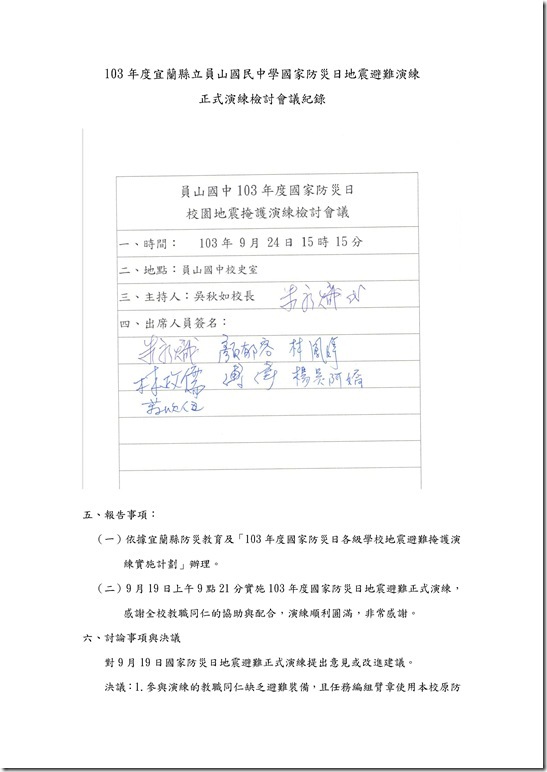 103 年度宜蘭縣立員山國民中學國家防災日地震避難演練
正式演練檢討會議紀錄
員山國中 103 年度國家防災日
校園地震掩護演練檢討會議
一、時間： 103 年 9 月 24 日 15 時 15 分
二、地點：員山國中校史室
三、主持人：吳秋如校長
四、出席人員簽名：
顏郁容
楊吳阿嬌
五、報告事項：
（一）依據宜蘭縣防災教育及「103 年度國家防災日各級學校地震避難掩護演
練實施計劃」辦理。
（二）9 月 19 日上午 9 點 21 分實施 103 年度國家防災日地震避難正式演練，
感謝全校教職同仁的協助與配合，演練順利圓滿，非常感謝。
六、討論事項與決議
對 9 月 19 日國家防災日地震避難正式演練提出意見或改進建議。
決議：1.參與演練的教職同仁缺乏避難裝備，且任務編組臂章使用本校原防